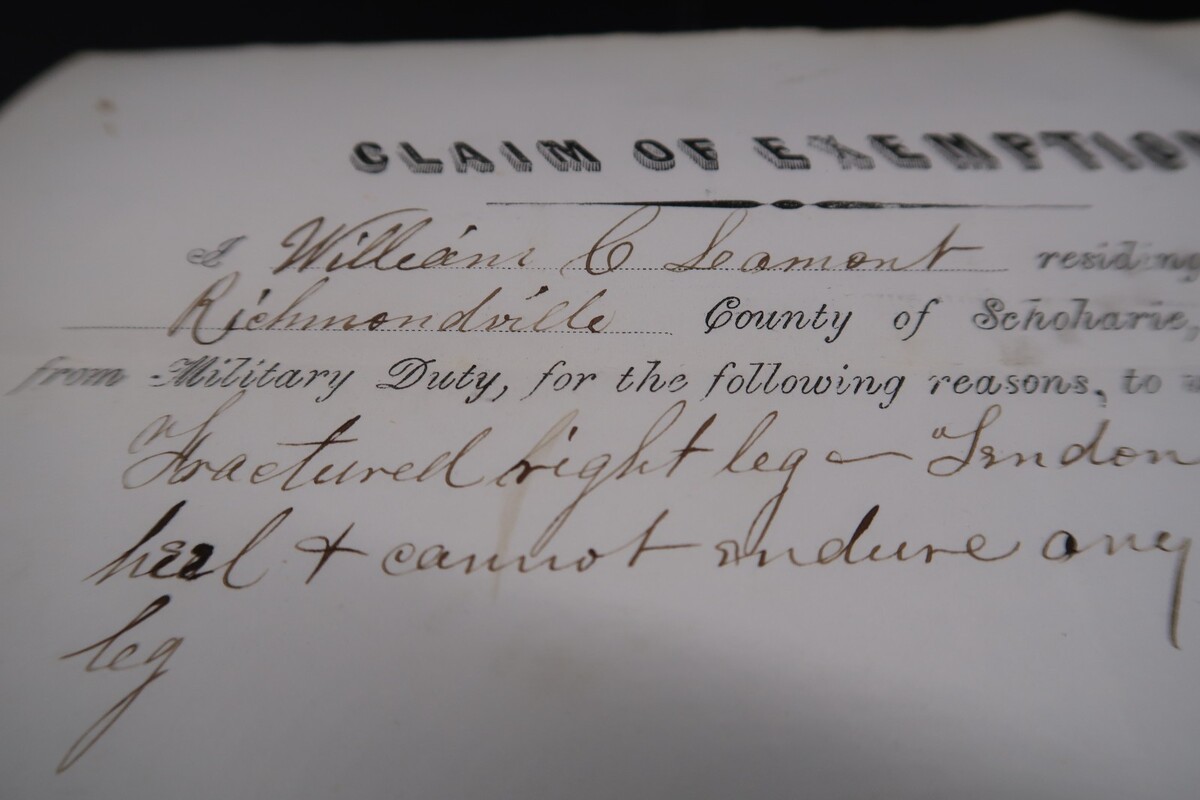 CLAIM OF EXEMPTION
I William C Lamont residing
Richmondville County of Schoharie,
from Military Duty, for the following reasons, to
Fractured right leg — Tendon
heel & cannot endure any
leg